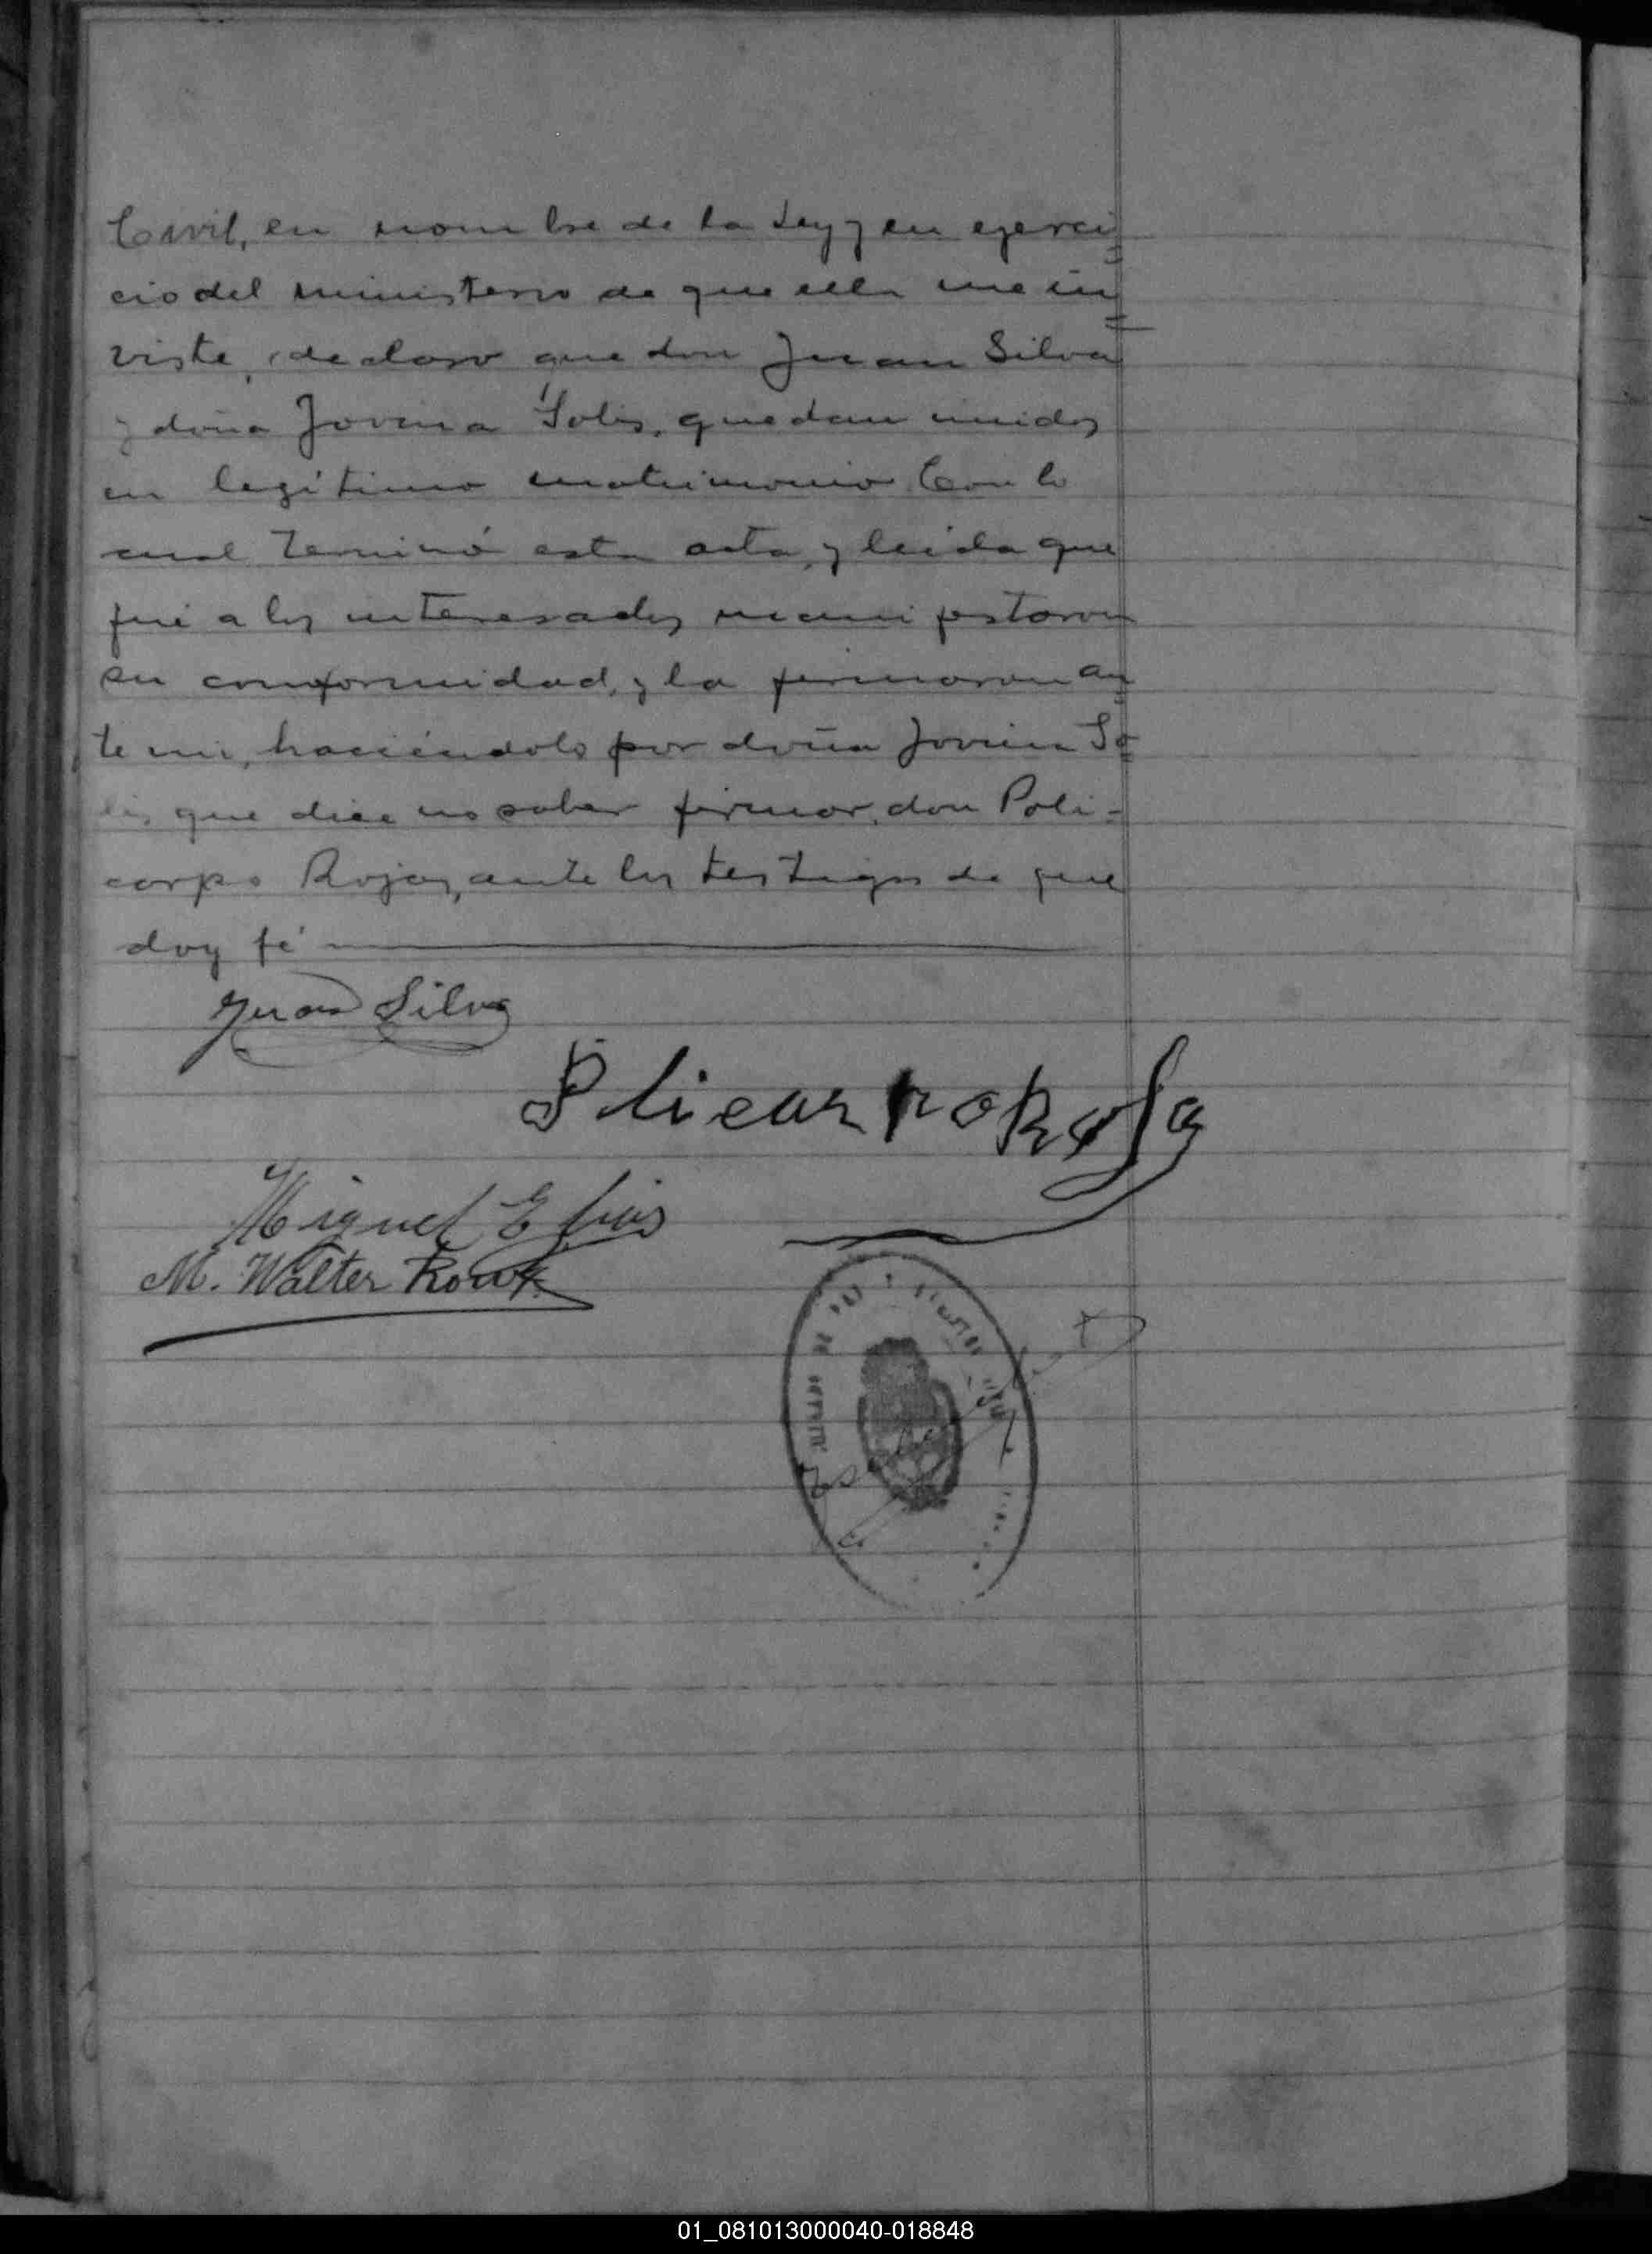 Civil, en nombre de la Ley y en ejerci
cio del ministerio de que ella me in
viste, declaro que don Juan Silva
y doña Jovina Solis, quedan unidos
en legítimo matrimonio. Con lo
cual terminó esta acta, y leida que
fué a los interesados manifestaron
su conformidad, y la firmaron an
te mi, haciéndolo por doña Jovina So
lis que dice no saber firmar, don Poli-
carpo Rojas, ante los testigos de que
doy fé
Juan Silva
Plicarpo Rojas
Miguel Elias
M. Walter
01_081013000040-018848